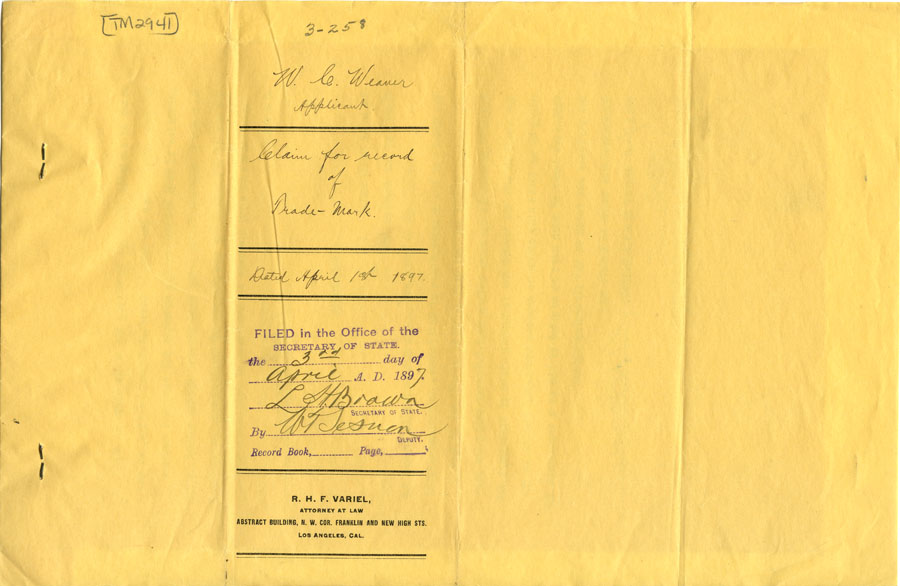 TM2941
3-258
W. C. Weaver
Applicant
Claim for record
of
Trade-Mark.
Dated April 1st 1897.
FILED in the Office of the
SECRETARY OF STATE.
the 3rd day of
April A. D. 1897.
L H Brown
SECRETARY OF STATE.
By
DEPUTY.
Record Book, Page,
R. H. F. VARIEL,
ATTORNEY AT LAW
ABSTRACT BUILDING, N. W. COR. FRANKLIN AND NEW HIGH STS.
LOS ANGELES, CAL.